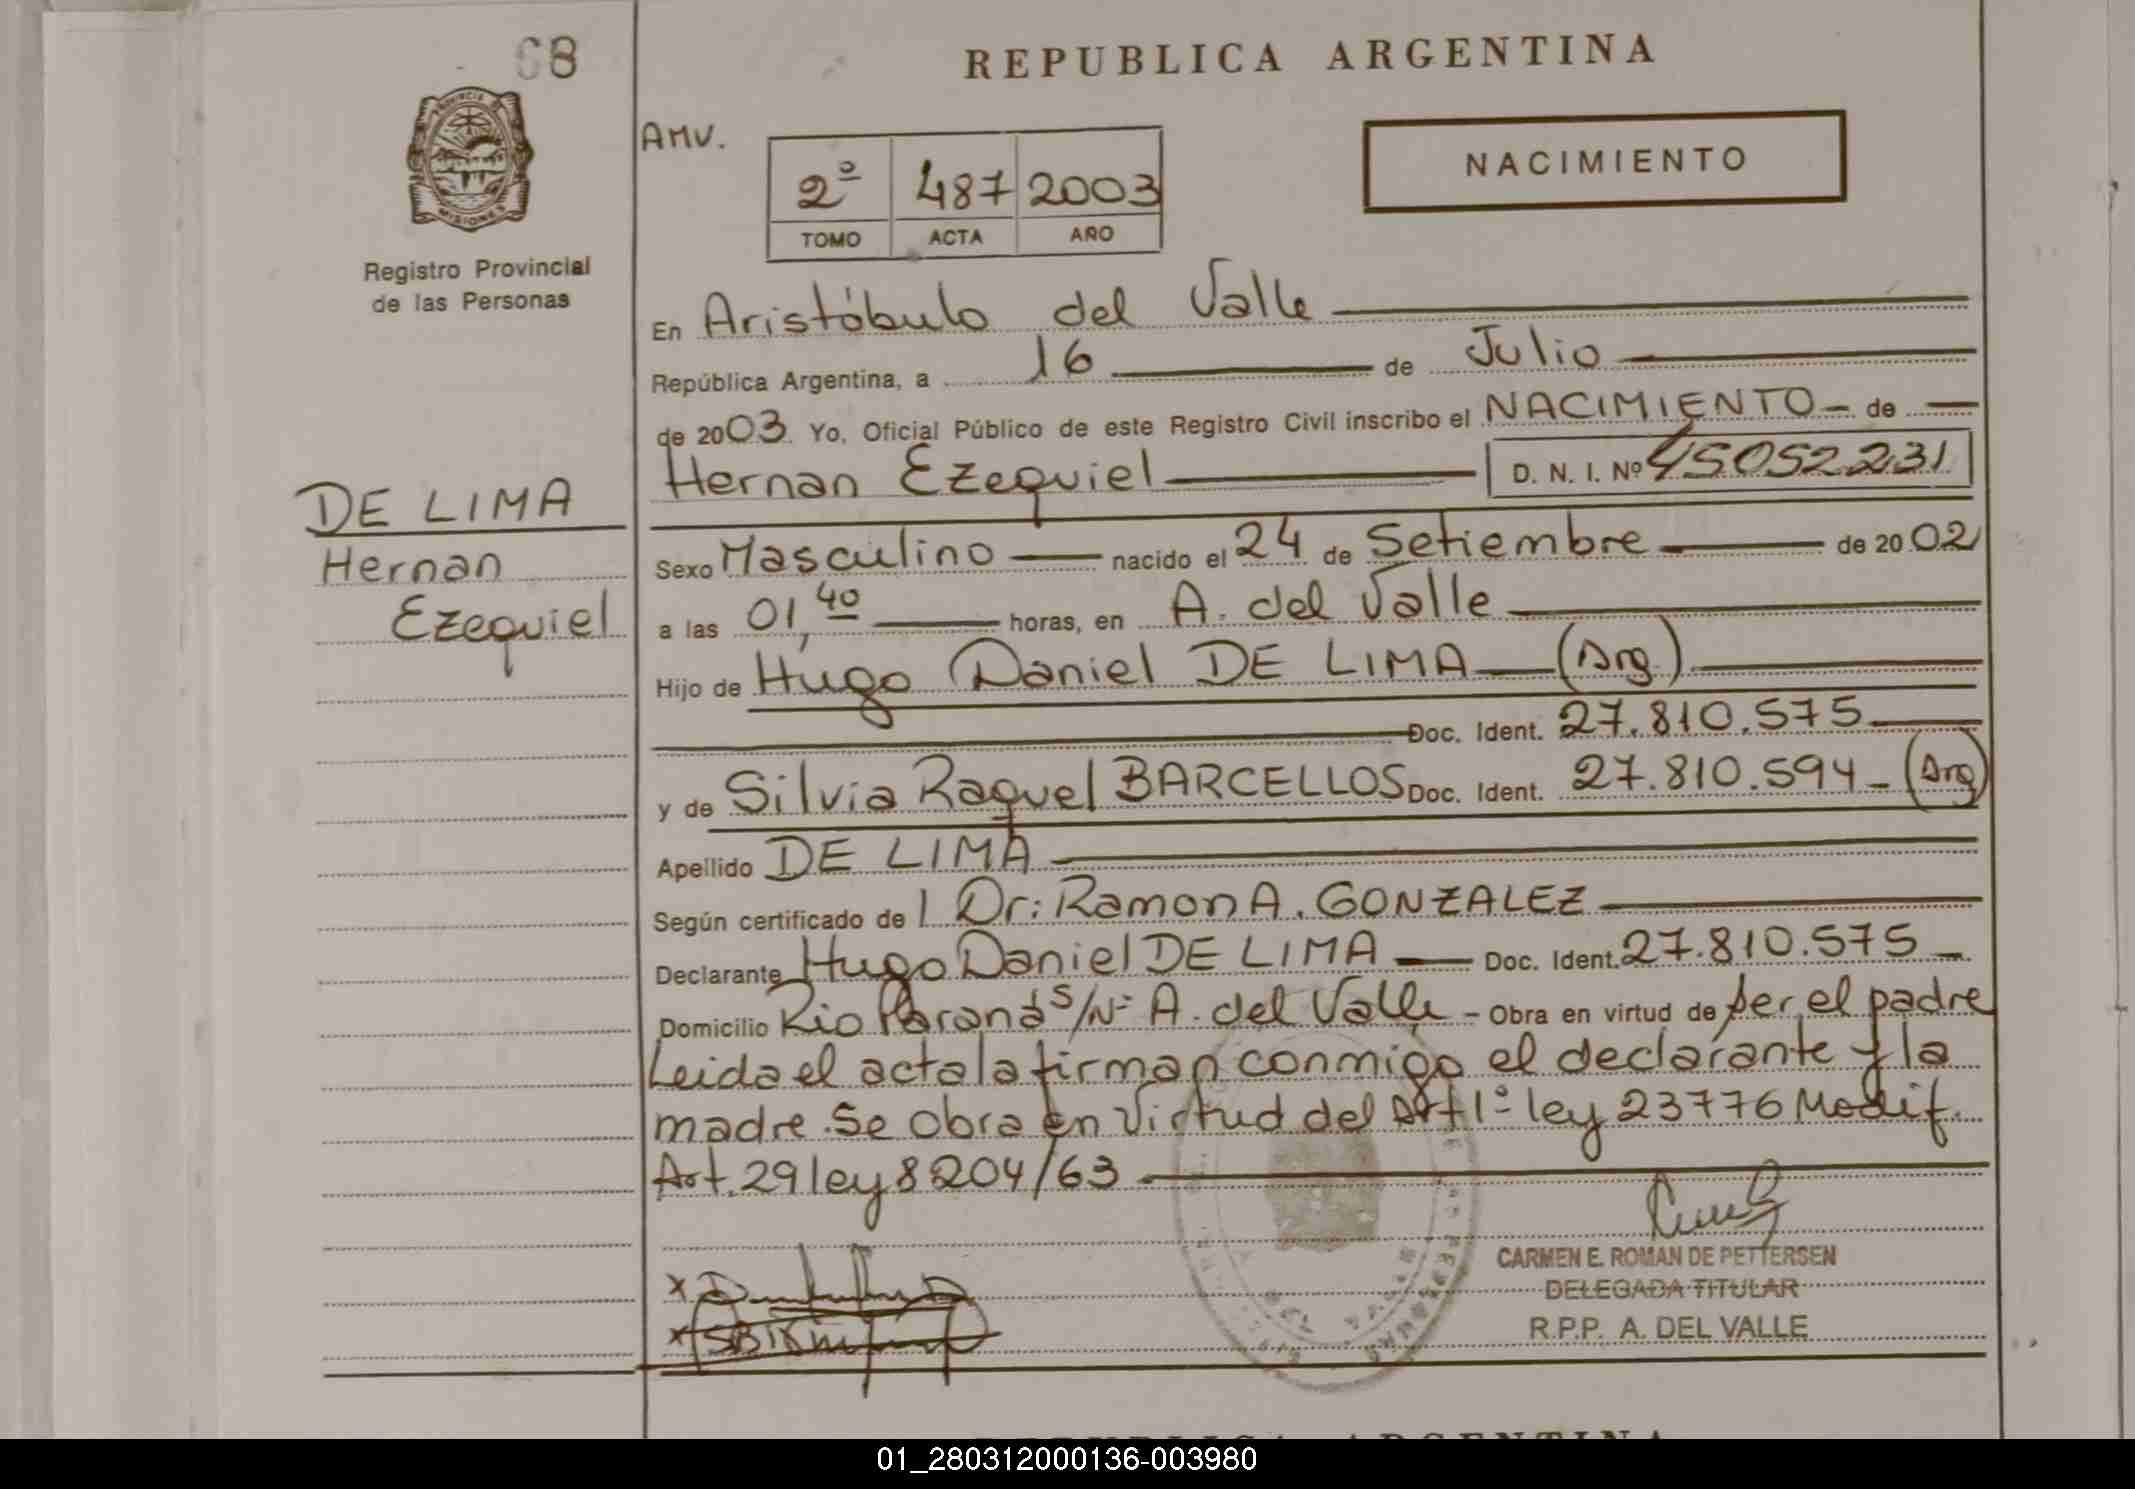 68
PROVINCIA DE
MISIONES
Registro Provincial
de las Personas
DE LIMA
Hernan
Ezequiel
REPUBLICA ARGENTINA
AMV.
2º 487 2003
TOMO ACTA AÑO
NACIMIENTO
En Aristóbulo del Valle
República Argentina, a 16 de Julio
de 2003. Yo, Oficial Público de este Registro Civil inscribo el NACIMIENTO - de
Hernan Ezequiel D. N. I. Nº 45052231
Sexo Masculino nacido el 24 de Setiembre de 2002
a las 01,40 horas, en A. del Valle
Hijo de Hugo Daniel DE LIMA (Arg.)
Doc. Ident. 27.810.575
y de Silvia Raquel BARCELLOS Doc. Ident. 27.810.594 - (Arg)
Apellido DE LIMA
Según certificado de l Dr: Ramon A. GONZALEZ
Declarante Hugo Daniel DE LIMA Doc. Ident. 27.810.575
Domicilio Rio Paraná S/Nº A. del Valle - Obra en virtud de ser el padre
Leida el acta la firman conmigo el declarante y la
madre. Se obra en Virtud del Art 1º ley 23776 Modif.
Art. 29 ley 8204/63
CARMEN E. ROMAN DE PETTERSEN
DELEGADA TITULAR
R.P.P. A. DEL VALLE
REPUBLICA ARGENTINA
01_280312000136-003980